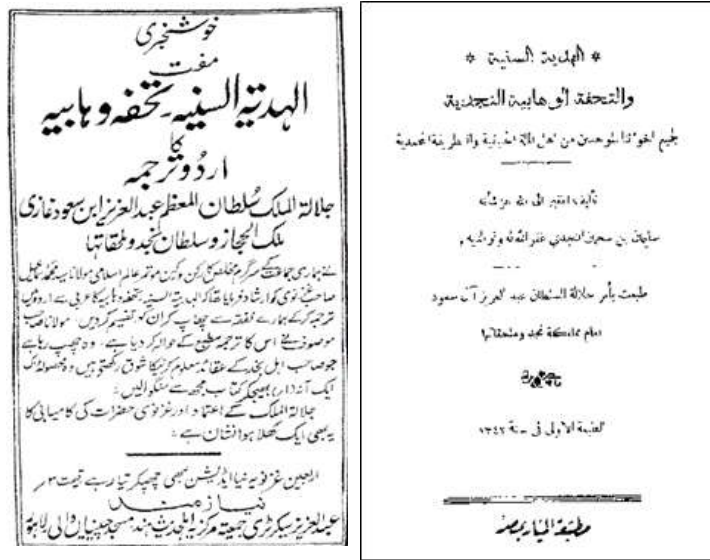 خوشخبری
مفت
الہدیۃ السنیہ۔ تحفہ وہابیہ
کا
اردو ترجمہ
جلالۃ الملک سلطان المعظم عبدالعزیز ابن سعود غازی
ملک الحجاز و سلطان نجد و ملحقاتہا
نے ہماری جماعت کے سرگرم مخلص کارکن و رکن موتمر عالم اسلامی مولانا سید محمد اسمٰعیل
صاحب غزنوی کو ارشاد فرمایا تھا کہ الہدیۃ السنیہ۔ تحفہ وہابیہ کا عربی سے اردو میں
ترجمہ کر کے ہمارے نفقہ سے چھاپ کر ان کو تقسیم کر دیں۔ مولانا صاحب
موصوف نے اس کا ترجمہ مطبع کے حوالہ کر دیا ہے۔ وہ چھپ رہا ہے
جو صاحب اہل نجد کے عقائد معلوم کرنیکا شوق رکھتے ہیں وہ محصولڈاک
ایک آنہ (۱ر) بھیجکر کتاب مجھ سے منگوالیں :
جلالۃ الملک کے اعتماد اور غزنوی حضرات کی کامیابی کا
یہ بھی ایک کھلا ہوا نشان ہے :
اربعین غزنویہ نیا ایڈیشن بھی چھپکر تیار ہے قیمت ۳ر
نیازمند
عبدالعزیز سیکرٹری جمعیۃ مرکزیہ اہلحدیث ہند مسجد چینیاں والی لاہور
* الهدية السنية *
والتحفة الوهابية النجدية
لجميع اخواننا الموحدين من اهل الملة الحنيفية والطريقة المحمدية
تأليف الفقير الى الله عز شأنه
سليمان بن سحمان النجدي غفر الله له ولوالديه
طبعت بأمر جلالة السلطان عبد العزيز آل سعود
امام مملكة نجد وملحقاتها
الطبعة الاولى في سنة ١٣٤٢
مطبعة المنار بمصر